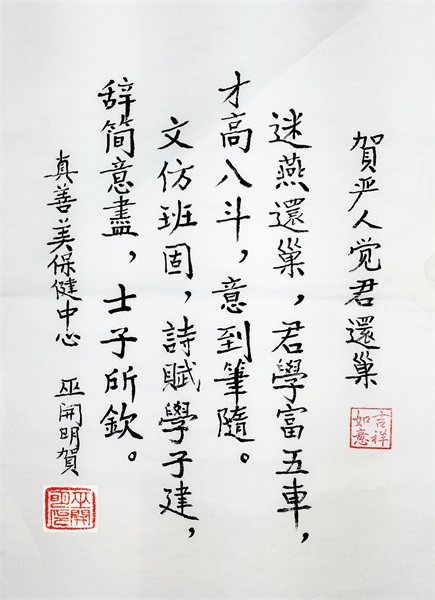 賀严人觉君還巢
吉祥
如意
迷燕還巢，君學富五車，
才高八斗，意到筆隨。
文仿班固，詩賦學子建，
辞简意盡，士子所欽。
真善美保健中心 巫開明賀
巫開
明印